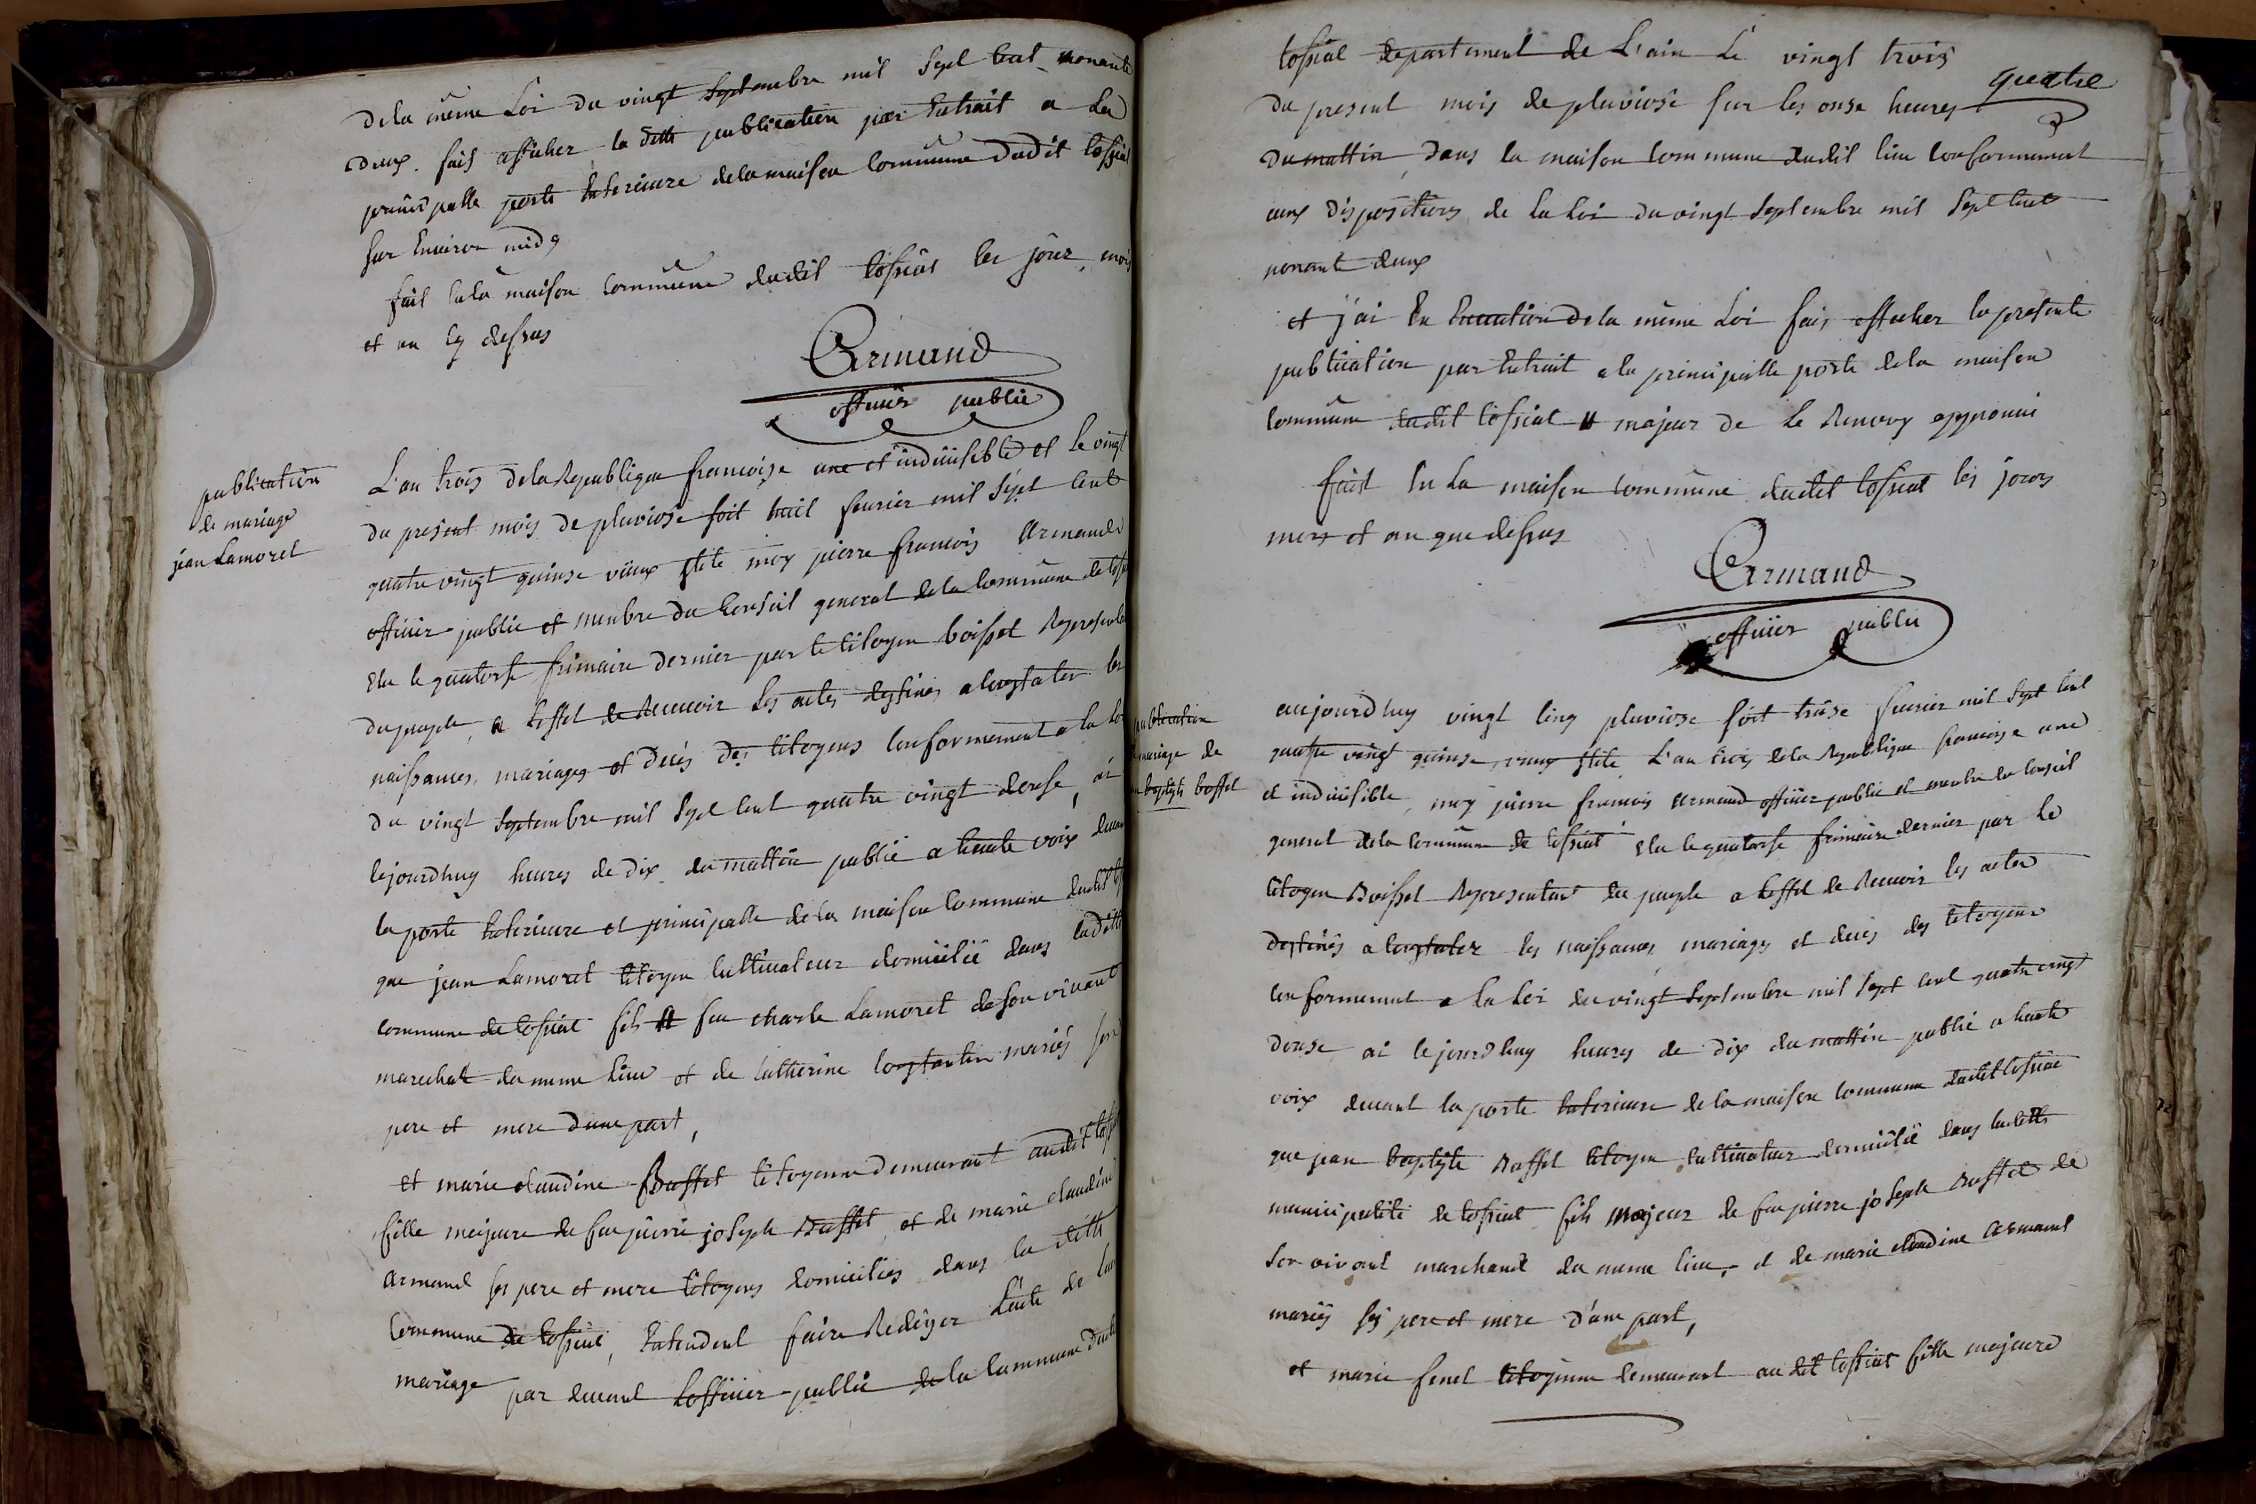 dela même Loi du vingt septembre mil sept cent nonante
deux. fait afficher la ditte publication par Extrait a la
principalle porte Exterieure dela maison commune dudit Cossiat
sur Environ midy
fait En la maison commune dudit Cossiat les jour, mois
et an Cy dessus
Armand
officier public
publication
de mariage
jean Lamoret
L'an trois dela Republique francoise une et indiuisible et le vingt
du present mois de pluviose soit huit feurier mil sept cent
quatre vingt quinse vieux stile moy pierre francois Armand
officier public et menbre du Conseil general dela commune de
Elu le quatorse frimaire dernier par le Citoyen boisset
du peuple, a L'effet de Receuoir les actes destinés a Constater les
naissances, mariages et decés des Citoyens Conformement a la Loi
du vingt septembre mil sept cent quatre vingt douse, ai
cejourdhuy heures de dix du mattin publié a haute voix deuant
la porte Exterieure et principalle dela maison Commune dudit
que jean Lamoret Citoyen Cultiuateur domicilié dans laditte
commune de Cossiat fils feu charle Lamoret de son viuant
marechal du meme Lieu et de Catherine Constantin mariés ses
pere et mere d'une part,
et marie claudine Buffet Citoyenne demeurant audit
fille majeure de feu pierre joseph Buffet et de marie claudine
Armand ses pere et mere Citoyens domiciliés dans la ditte
Commune de Cossiat, Entendent faire Rediger L'acte de leur
mariage par deuant L'officier public de la Commune
quatre
Cossiat departement de L'ain Le vingt trois
du present mois de pluviose sur les onse heures
du mattin, dans la maison commune dudit lieu conformement
aux dispositions de la Loi du vingt septembre mil sept cent
nonant deux
et j'ai En Execution dela même Loi fais afficher la presente
publication par Extrait a la principalle porte dela maison
commune dudit Cossiat # majeur de Le Renvoy approuué
fait En La maison commune dudit Cossiat les jours
mois et an que dessus
Armand
officier public
publication
mariage de
baptiste buffet
aujourd'huy vingt cinq pluviose soit treise feurier mil sept cent
quatre vingt quinse, vieux stile, L'an trois dela Republique francoise une
et indiuisible, moy pierre francois Armand officier public et menbre du Conseil
general dela commune de Cossiat Elu le quatorse frimaire dernier par le
Citoyen Boisset Representant du peuple a L'effet de Receuoir les actes
destinés a Constater les naissances, mariages et decés des Citoyens
Conformement a la Loi du vingt septembre mil sept cent quatre vingt
douse, ai cejourdhuy heures de dix du mattin publié a haute
voix deuant la porte Exterieure dela maison commune dudit Cossiat
que jean baptiste Buffet Citoyen Cultiuateur domicilié dans laditte
municipalité de Cossiat fils majeur de feu pierre joseph Buffet de
son vivant marchand du meme lieu, et de marie claudine Armand
mariés ses pere et mere d'une part,
et marie fenet Citoyenne demeurant au dit Cossiat fille majeure